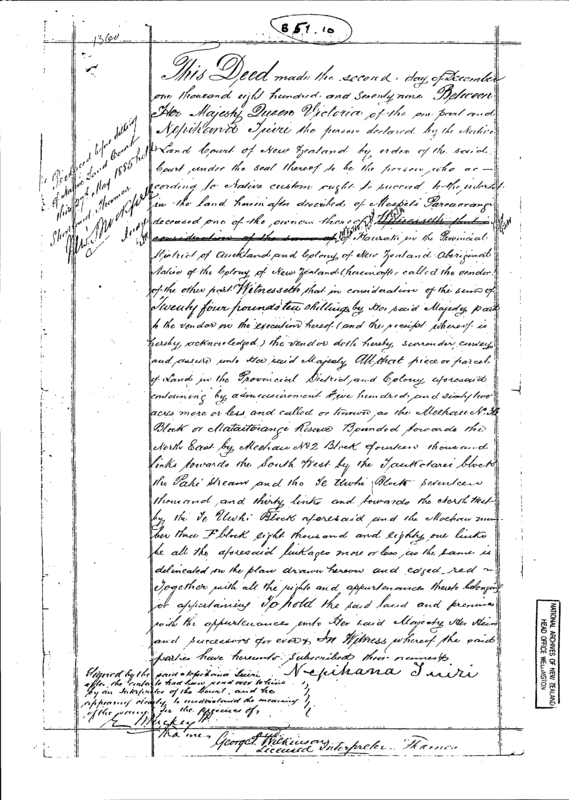 B 51.10
1360
This Deed made the second day of December
one thousand eight hundred and seventy nine Between
Her Majesty Queen Victoria of the one part and
Nepihana Tuiri the person declared by the Native
Land Court of New Zealand by order of the said
Court under the seal thereof to be the person who ac-
cording to Native custom ought to succeed to the interest
in the land hereinafter described of
deceased one of the owners thereof Witnesseth that in
consideration of the sum of of Hauraki in the Provincial
District of Auckland and Colony of New Zealand Aboriginal
Native of the Colony of New Zealand (hereinafter called the vendor)
of the other part Witnesseth that in consideration of the sum of
Twenty four pounds ten shillings by Her said Majesty paid
to the vendor on the execution hereof (and the receipt whereof is
hereby acknowledged) the vendor doth hereby surrender convey
and assure unto Her said Majesty All that piece or parcel
of Land in the Provincial District and Colony aforesaid
containing by admeasurement Five hundred and sixty two
acres more or less and called or known as the Moehau No.
Block or Mataitoirangi Reserve Bounded towards the
North East by Moehau No 2 Block fourteen thousand
links towards the South West by the block
the Paki stream and the Te Uwhi Block seventeen
thousand and thirty links and towards the North West
by the Te Uwhi Block aforesaid and the Moehau num-
ber three F block eight thousand and eighty one links
be all the aforesaid linkages more or less as the same is
delineated in the plan drawn hereon and edged red -
Together with all the rights and appurtenances thereto belonging
or appertaining To hold the said land and premises
with the appurtenances unto Her said Majesty Her Heirs
and successors for ever In Witness whereof the said
parties have hereunto subscribed their names
Nepihana Tuiri
Signed by the said Nepihana Tuiri
after the contents had been read over to him
by an Interpreter of the Court and he
appearing clearly to understand the meaning
of the same in the presence of
Thames
George T. Wilkinson
Licensed Interpreter Thames
Produced before sitting
of Native Land Court
this 27th May 1885 held
Thames
NATIONAL ARCHIVES OF NEW ZEALAND
HEAD OFFICE WELLINGTON